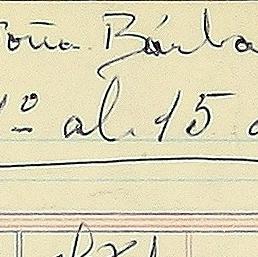 Doña Bárba
1º al 15